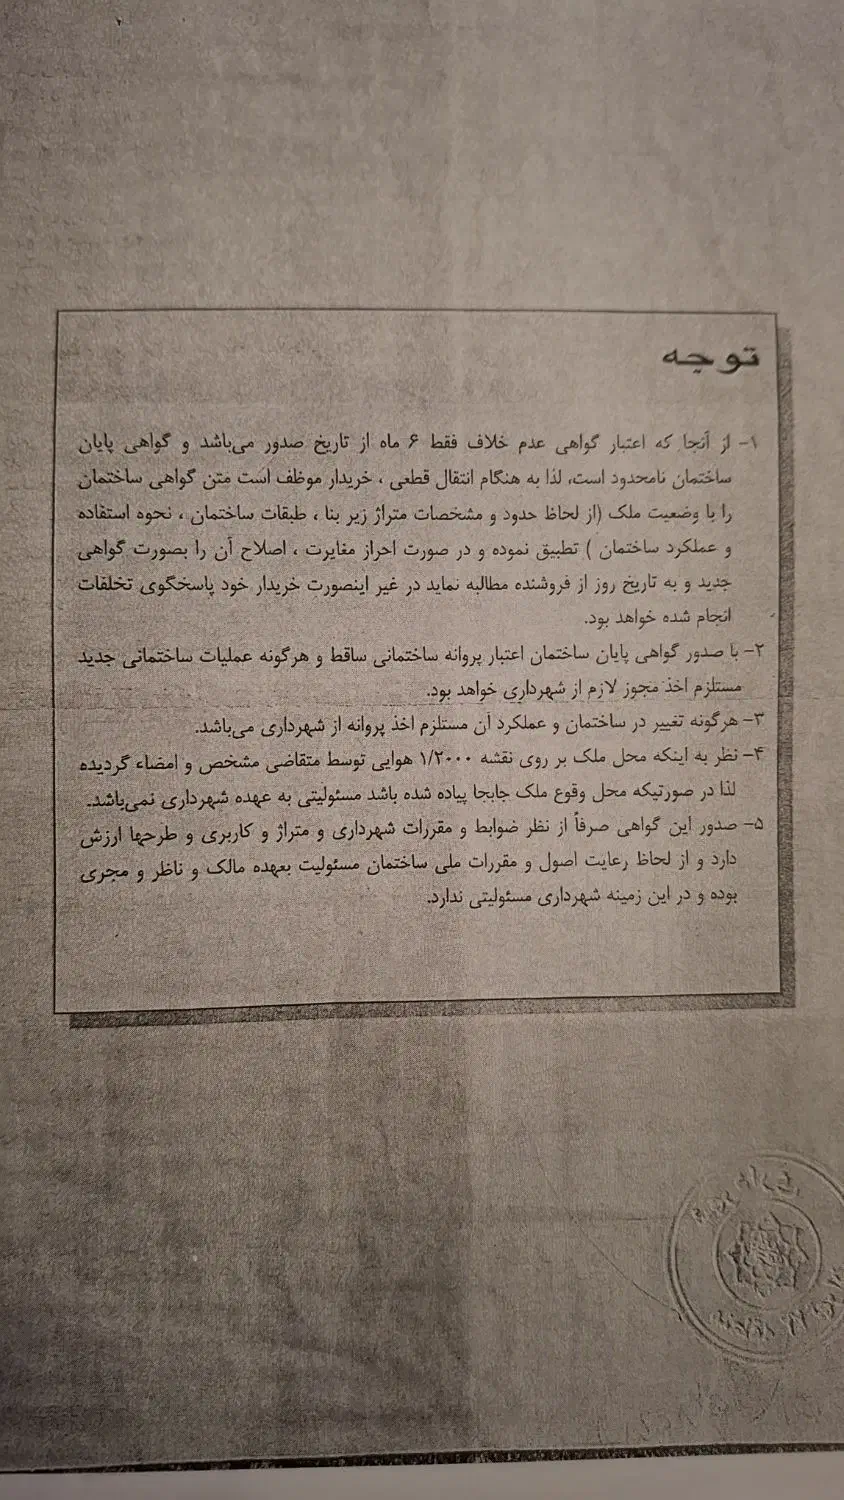 توجه
۱- از آنجا که اعتبار گواهی عدم خلاف فقط ۶ ماه از تاریخ صدور می‌باشد و گواهی پایان
ساختمان نامحدود است، لذا به هنگام انتقال قطعی ، خریدار موظف است متن گواهی ساختمان
را با وضعیت ملک (از لحاظ حدود و مشخصات متراژ زیر بنا ، طبقات ساختمان ، نحوه استفاده
و عملکرد ساختمان ) تطبیق نموده و در صورت احراز مغایرت ، اصلاح آن را بصورت گواهی
جدید و به تاریخ روز از فروشنده مطالبه نماید در غیر اینصورت خریدار خود پاسخگوی تخلفات
انجام شده خواهد بود.
۲- با صدور گواهی پایان ساختمان اعتبار پروانه ساختمانی ساقط و هرگونه عملیات ساختمانی جدید
مستلزم اخذ مجوز لازم از شهرداری خواهد بود.
۳- هرگونه تغییر در ساختمان و عملکرد آن مستلزم اخذ پروانه از شهرداری می‌باشد.
۴- نظر به اینکه محل ملک بر روی نقشه ۱/۲۰۰۰ هوایی توسط متقاضی مشخص و امضاء گردیده
لذا در صورتیکه محل وقوع ملک جابجا پیاده شده باشد مسئولیتی به عهده شهرداری نمی‌باشد.
۵- صدور این گواهی صرفاً از نظر ضوابط و مقررات شهرداری و متراژ و کاربری و طرحها ارزش
دارد و از لحاظ رعایت اصول و مقررات ملی ساختمان مسئولیت بعهده مالک و ناظر و مجری
بوده و در این زمینه شهرداری مسئولیتی ندارد.